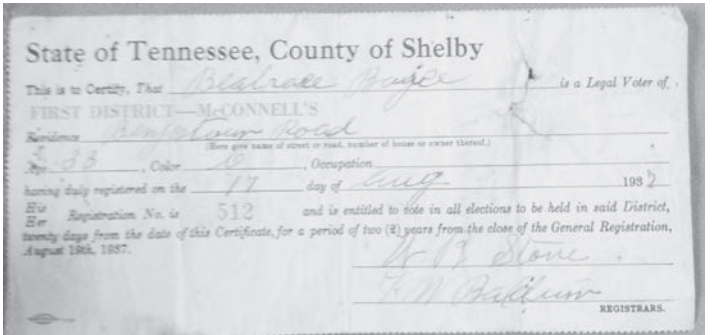 State of Tennessee, County of Shelby
This is to Certify, That Beatrace Boyce is a Legal Voter of
FIRST DISTRICT—McCONNELL'S
Residence Benjestown Road
(Here give name of street or road, number of house or owner thereof.)
Age 33, Color C, Occupation
having duly registered on the 17 day of Aug 1937
His
Her Registration No. is 512 and is entitled to vote in all elections to be held in said District,
twenty days from the date of this Certificate, for a period of two (2) years from the close of the General Registration,
August 19th, 1937.
W B Stone
F W Baldwin
REGISTRARS.